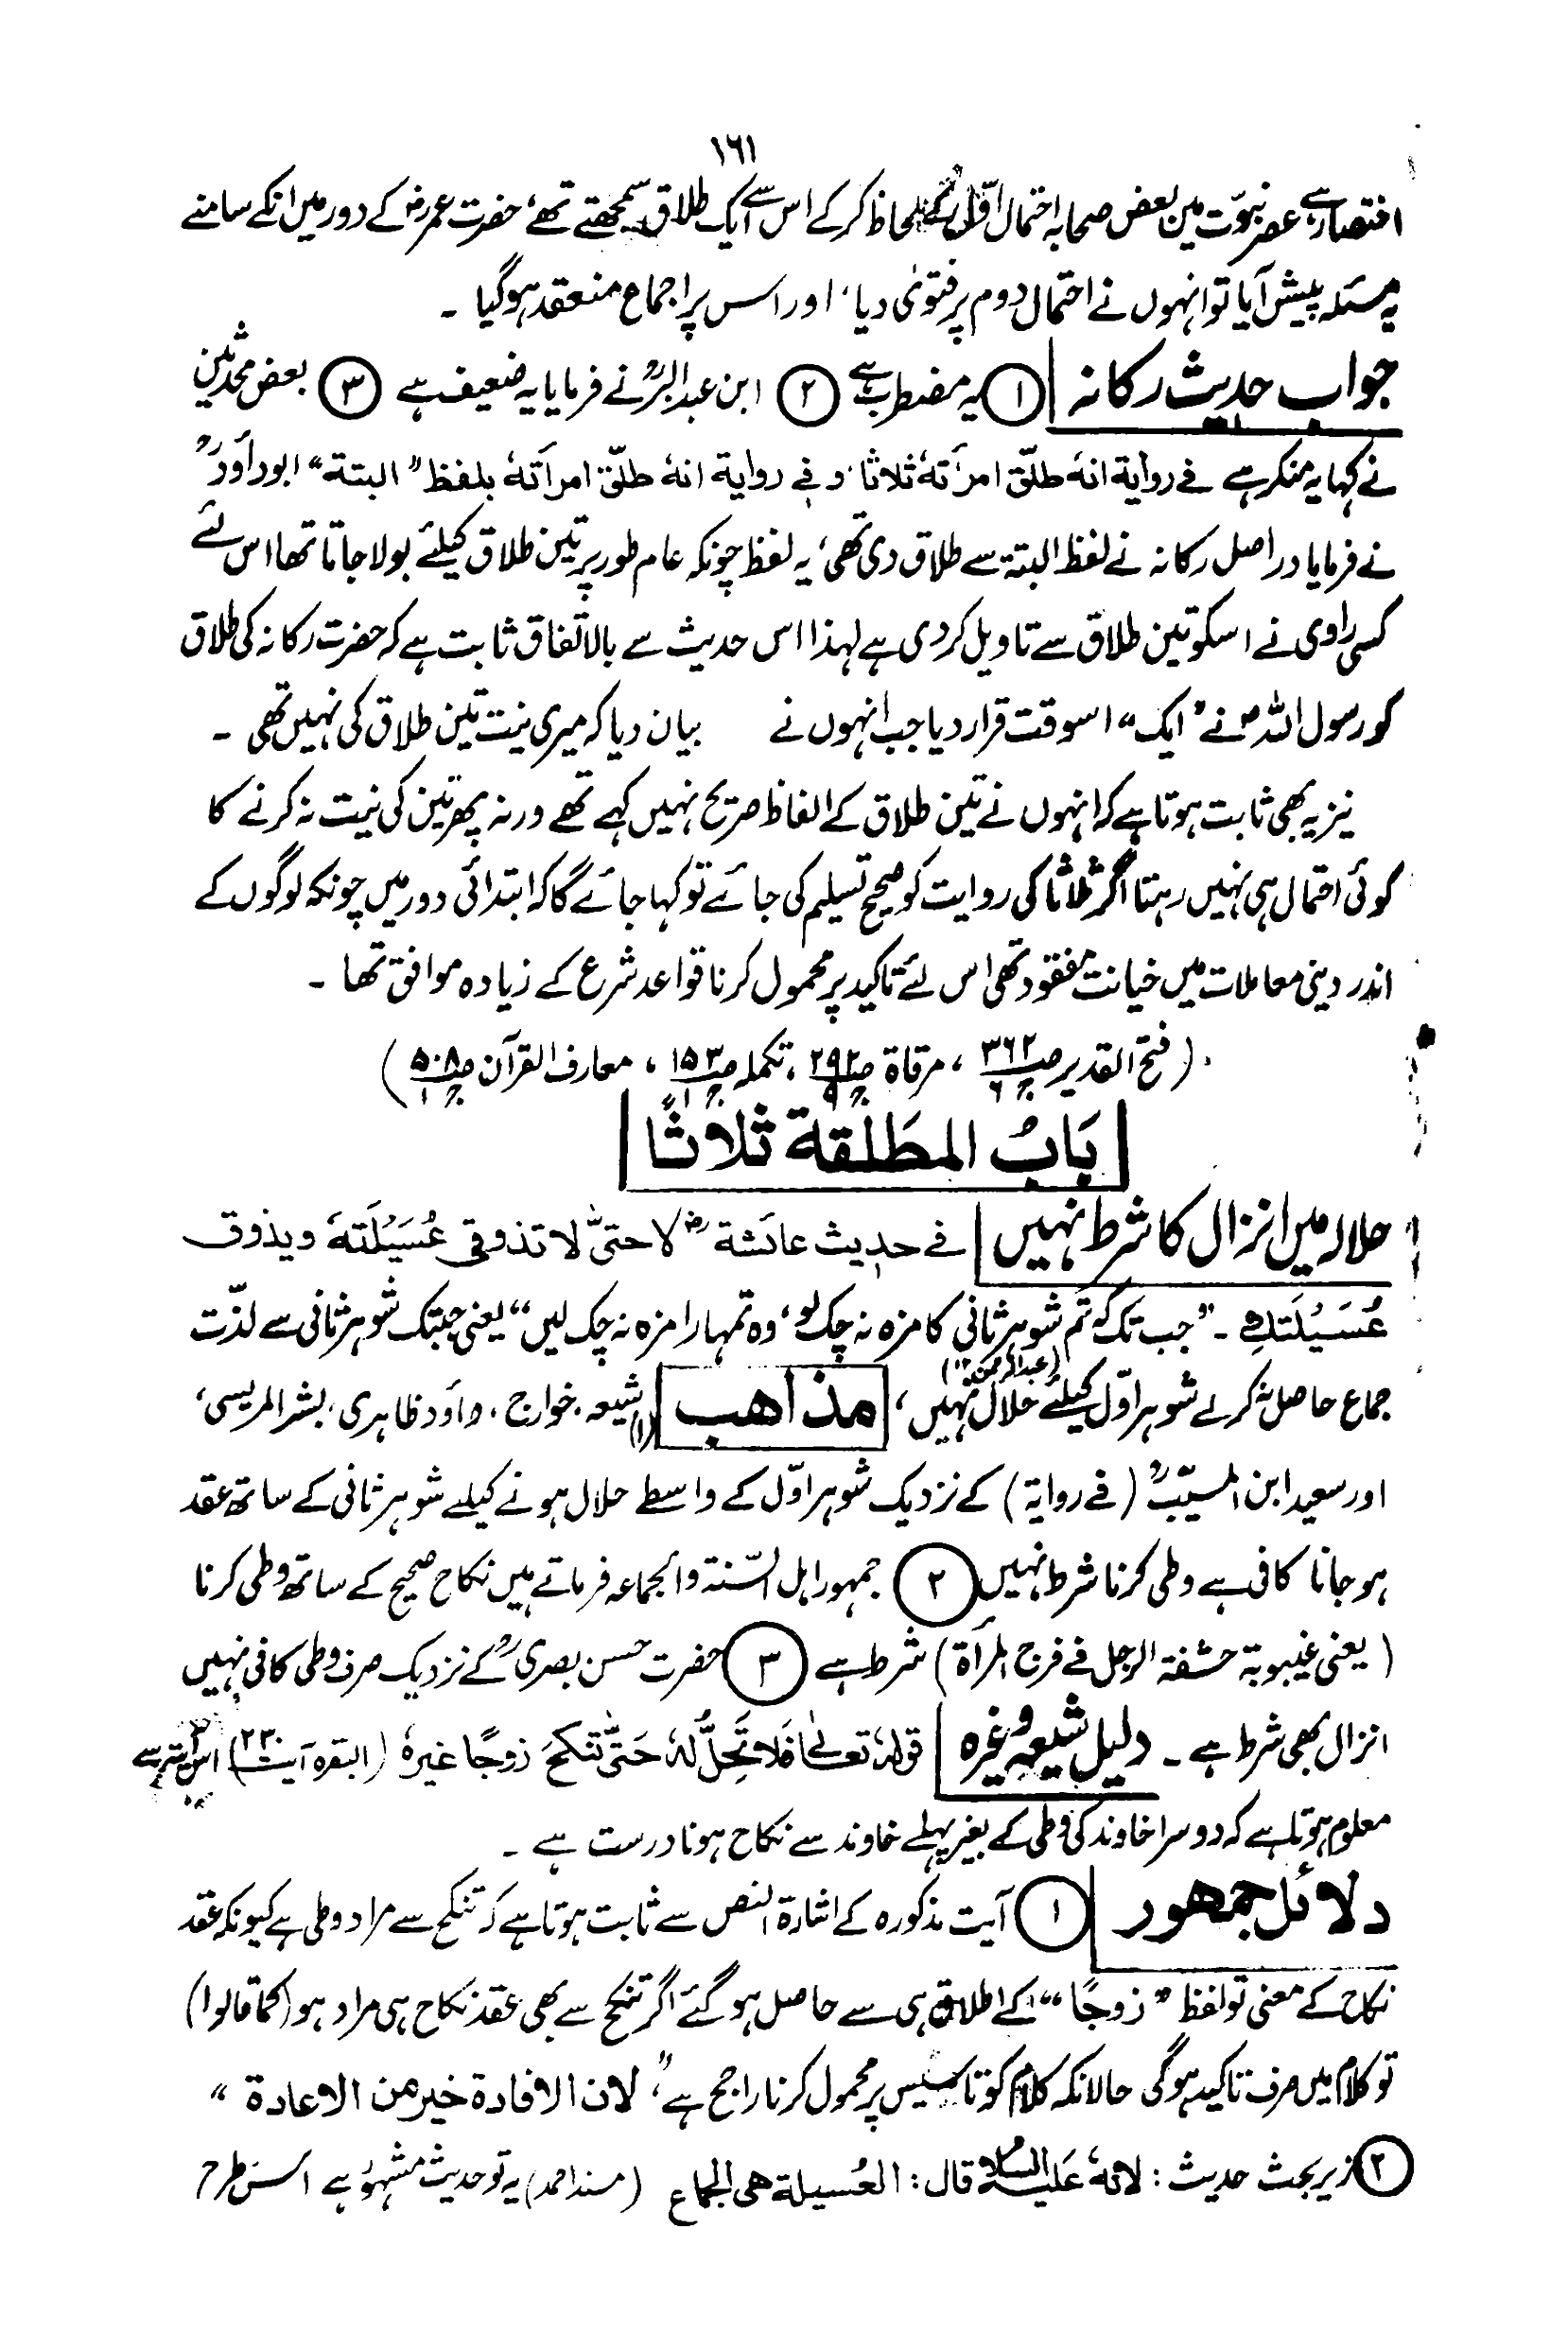 ١٦١
اختصار ہے عصر نبوّت میں بعض صحابہ احتمال اوّل کے لحاظ کر کے اس سے ایک طلاق سمجھتے تھے، حضرت عمرؓ کے دور میں انکے سامنے
یہ مسئلہ پیش آیا تو انہوں نے احتمال دوم پر فتویٰ دیا، اور اس پر اجماع منعقد ہو گیا ۔
جواب حدیث رکانہ ① یہ مضطرب ہے ② ابن عبدالبرؒ نے فرمایا یہ ضعیف ہے ③ بعض محدثین
نے کہا یہ منکر ہے فے روایة انہٗ طلّق امرأتهٗ ثلاثا، و فی روایة انهٗ طلّق امرأتهٗ بلفظ ”البتة“ ابوداؤدؒ
نے فرمایا دراصل رکانہ نے لفظ البتة سے طلاق دی تھی، یہ لفظ چونکہ عام طور پر تین طلاق کیلئے بولا جاتا تھا اس لئے
کسی راوی نے اسکو تین طلاق سے تاویل کر دی ہے لہذا اس حدیث سے بالاتفاق ثابت ہے کہ حضرت رکانہ کی طلاق
کو رسول اللہؐ نے ”ایک“ اسوقت قرار دیا جب انہوں نے بیان دیا کہ میری نیت تین طلاق کی نہیں تھی ۔
نیز یہ بھی ثابت ہوتا ہے کہ انہوں نے تین طلاق کے الفاظ صریح نہیں کہے تھے ورنہ پھر تین کی نیت نہ کرنے کا
کوئی احتمال ہی نہیں رہتا اگر ثلاثا کی روایت کو صحیح تسلیم کی جائے تو کہا جائے گا کہ ابتدائی دور میں چونکہ لوگوں کے
اندر دینی معاملات میں خیانت مفقود تھی اس لئے تاکید پر محمول کرنا قواعد شرع کے زیادہ موافق تھا ۔
(فتح القدیر صـ٣٦٢ جـ٦، مرقاة صـ٢٩٢ جـ٩، تکملہ صـ١٥٣ جـ١، معارف القرآن صـ٥٠٨ جـ١)
بَابُ المطَلَّقة ثَلاثًا
حلالہ میں انزال کا شرط نہیں فے حدیث عائشةؓ لا حتىّٰ لا تذوقی عُسَیْلَتهٗ ویذوق
عُسَیْلَتكِ ۔ ”جب تک کہ تم شوہر ثانی کا مزہ نہ چک لو، وہ تمہارا مزہ نہ چک لیں“ یعنی جبتک شوہر ثانی سے لذّت
جماع حاصل نہ کرلے شوہر اوّل کیلئے حلال نہیں، مذاهب (١) شیعہ، خوارج، داؤد ظاہری، بشر المریسی،
اور سعید ابن المسیّبؒ (فے روایة) کے نزدیک شوہر اوّل کے واسطے حلال ہونے کیلئے شوہر ثانی کے ساتھ عقد
ہو جانا کافی ہے وطی کرنا شرط نہیں ② جمہور اہل السّنة والجماعہ فرماتے ہیں نکاح صحیح کے ساتھ وطی کرنا
(یعنی غیبوبة حشفة الرجل فے فرج المرأة) شرط ہے ③ حضرت حسن بصریؒ کے نزدیک صرف وطی کافی نہیں
انزال بھی شرط ہے ۔ دلیل شیعہ وغیرہ قولہٗ تعالےٰ فَلَا تَحِلُّ لَهٗ حَتّٰی تَنْکِحَ زَوجًا غیرہٗ (البقرہ آیت ٢٣٠) اس آیت سے
معلوم ہوتا ہے کہ دوسرا خاوند کی وطی کے بغیر پہلے خاوند سے نکاح ہونا درست ہے ۔
دلائل جمهور ① آیت مذکورہ کے اشارة النص سے ثابت ہوتا ہے کہ تنکح سے مراد وطی ہے کیونکہ عقد
نکاح کے معنی تو لفظ ”زوجًا“ کے اطلاق ہی سے حاصل ہو گئے اگر تنکح سے بھی عقد نکاح ہی مراد ہو (کما قالوا)
تو کلام میں صرف تاکید ہوگی حالانکہ کلام کو تاسیس پر محمول کرنا راجح ہے ”لان الافادة خیر من الاعادة“
② زیر بحث حدیث : لانهٗ عَلیہ السلام قال : العُسیلة هی الجماع (مسند احمد) یہ تو حدیث مشہور ہے اسی طرح